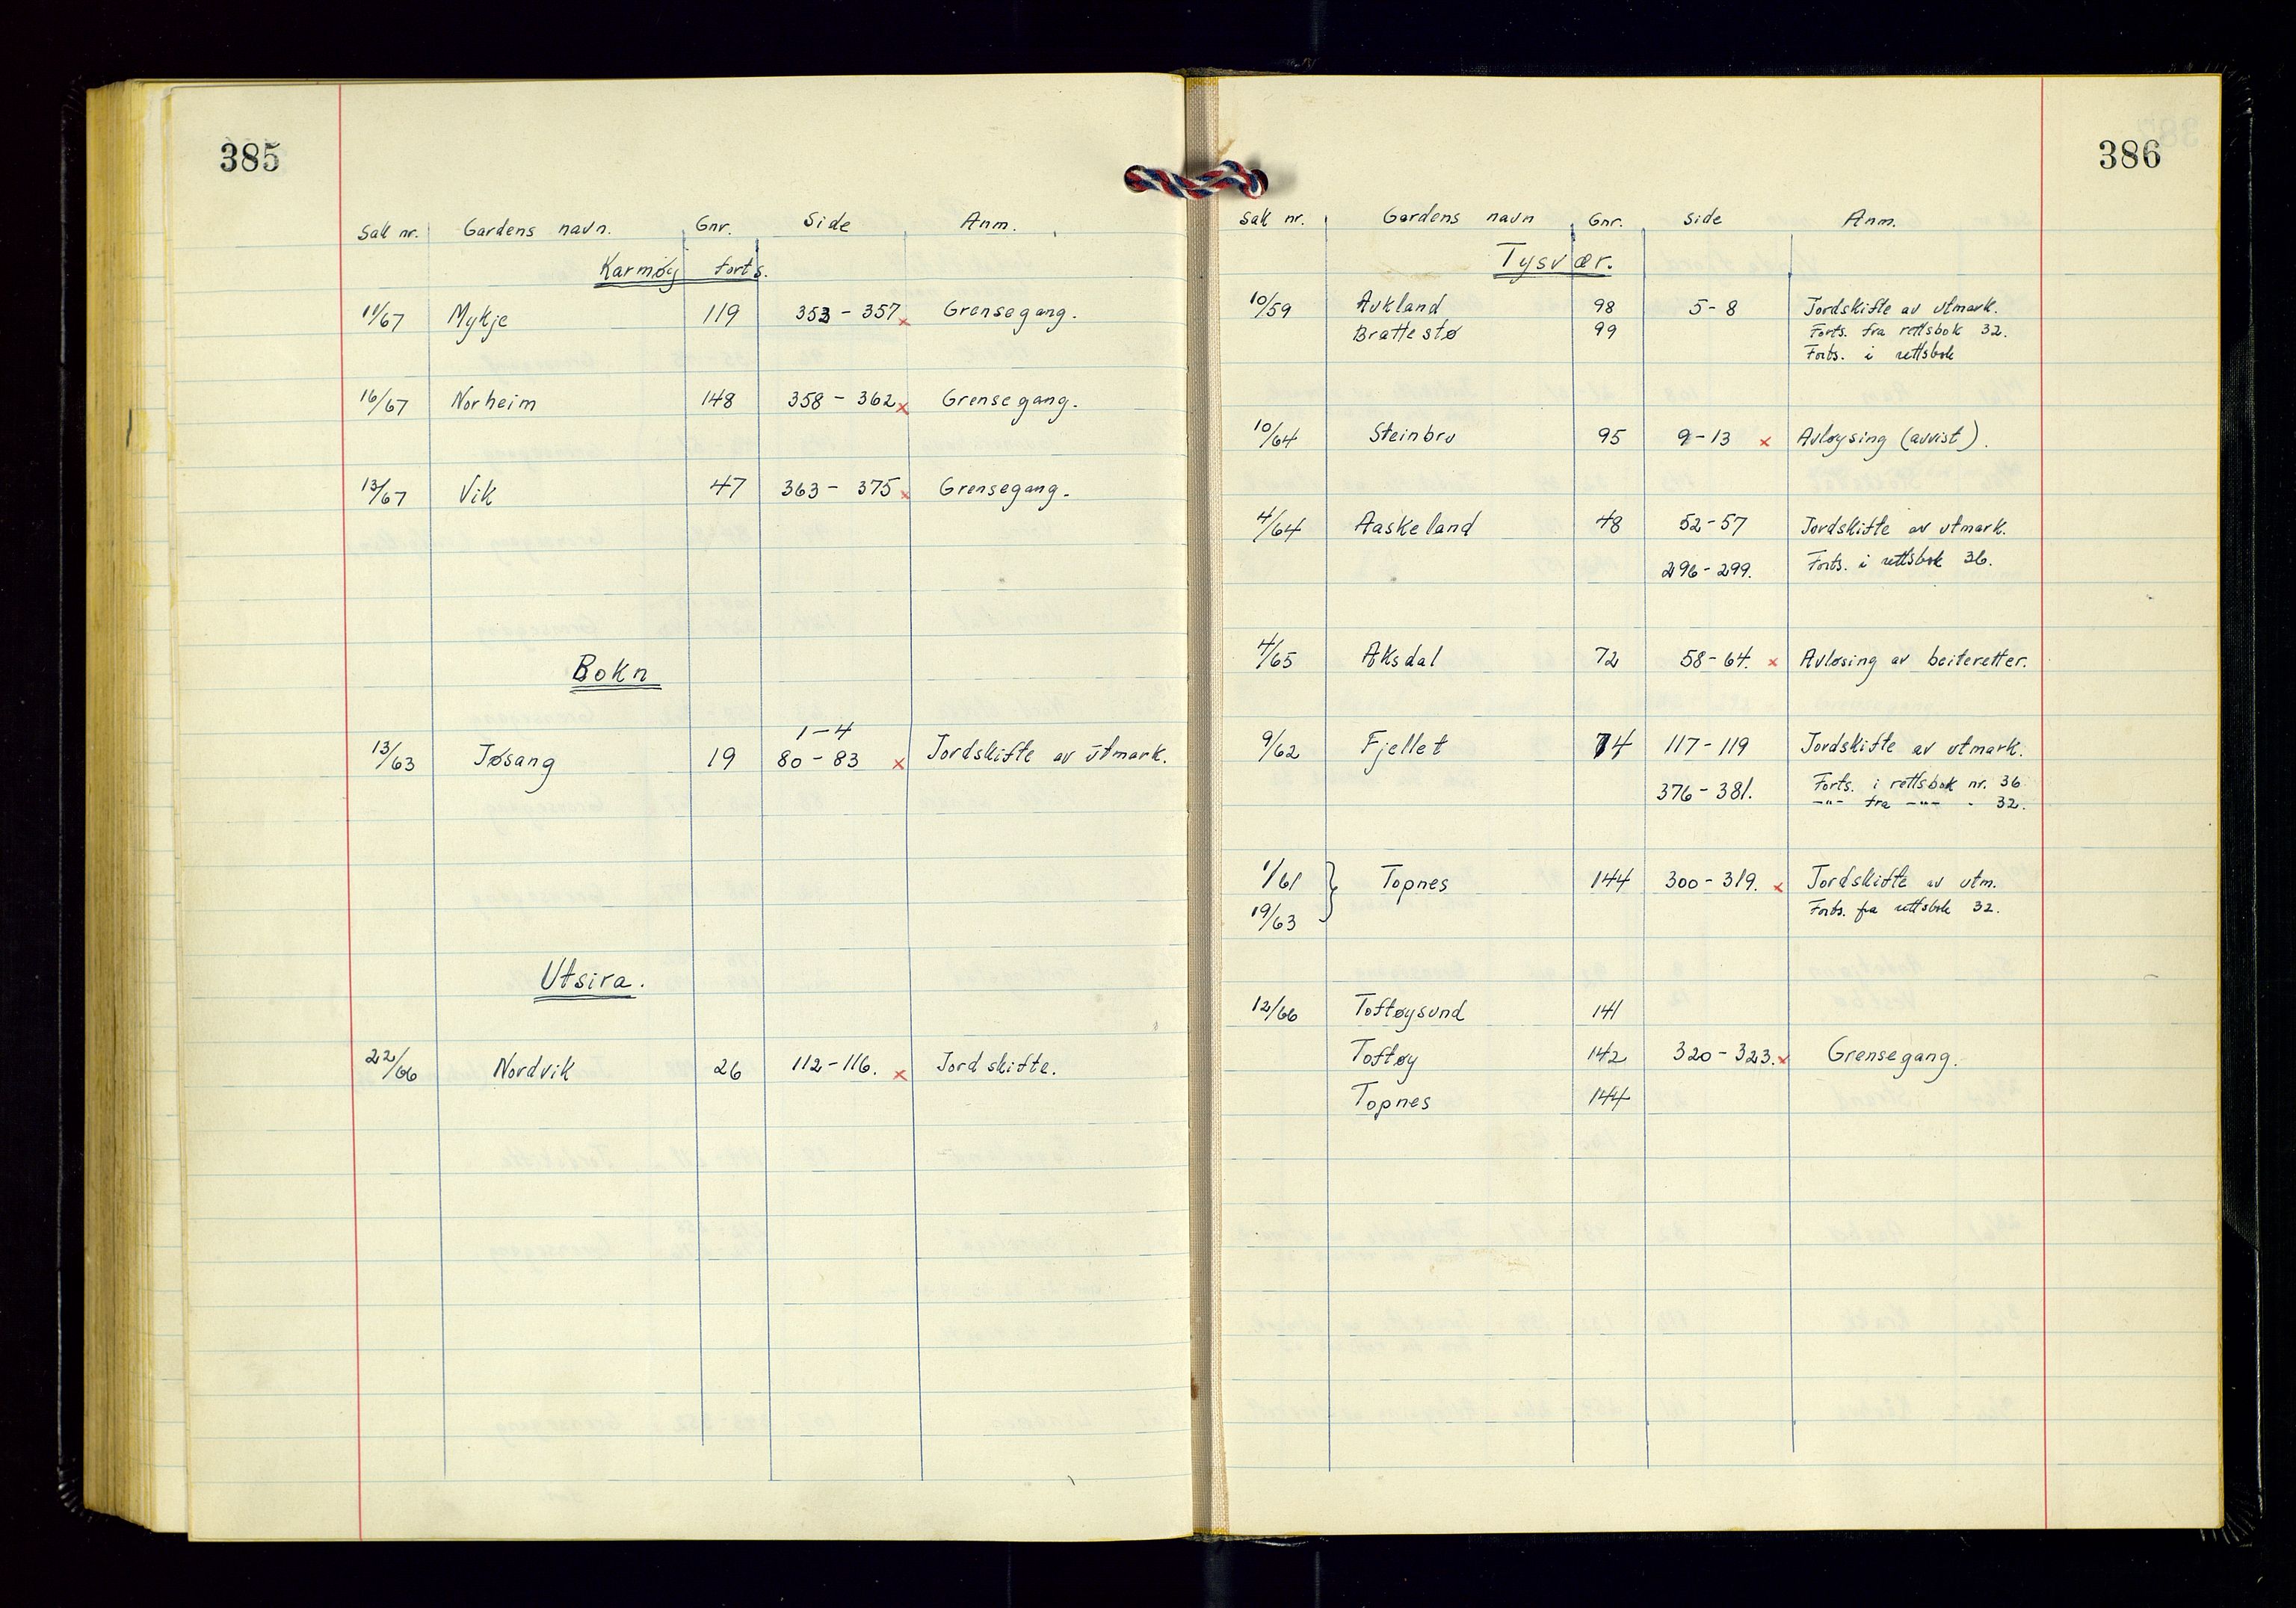 385
Sak nr. Gardens navn. Gnr. Side Anm.
Karmøy forts.
11/67 Mykje 119 353 - 357 x Grensegang.
16/67 Norheim 148 358 - 362 x Grensegang.
13/67 Vik 47 363 - 375 x Grensegang.
Bokn
1-4
13/63 Jøsang 19 80 - 83 x Jordskifte av utmark.
Utsira.
22/66 Nordvik 26 112-116. x Jordskifte.
386
Sak nr. Gardens navn Gnr. Side Anm.
Tysvær.
10/59 Aukland 98 5-8 Jordskifte av utmark.
Brattestø 99 Forts. fra rettsbok 32.
Forts. i rettsbok
10/64 Steinbru 95 9-13 x Avløysing (avvist).
4/64 Aaskeland 48 52-57 Jordskifte av utmark.
296-299. Forts. i rettsbok 36.
4/65 Aksdal 72 58-64. x Avløsing av beiteretter.
9/62 Fjellet 74 117-119 Jordskifte av utmark.
376-381. Forts. i rettsbok nr. 36
-"- fra -"- - 32.
1/61 } Topnes 144 300-319. x Jordskifte av utm.
19/63 Forts. fra rettsbok 32.
12/66 Toftøysund 141
Toftøy 142 320-323. x Grensegang.
Topnes 144